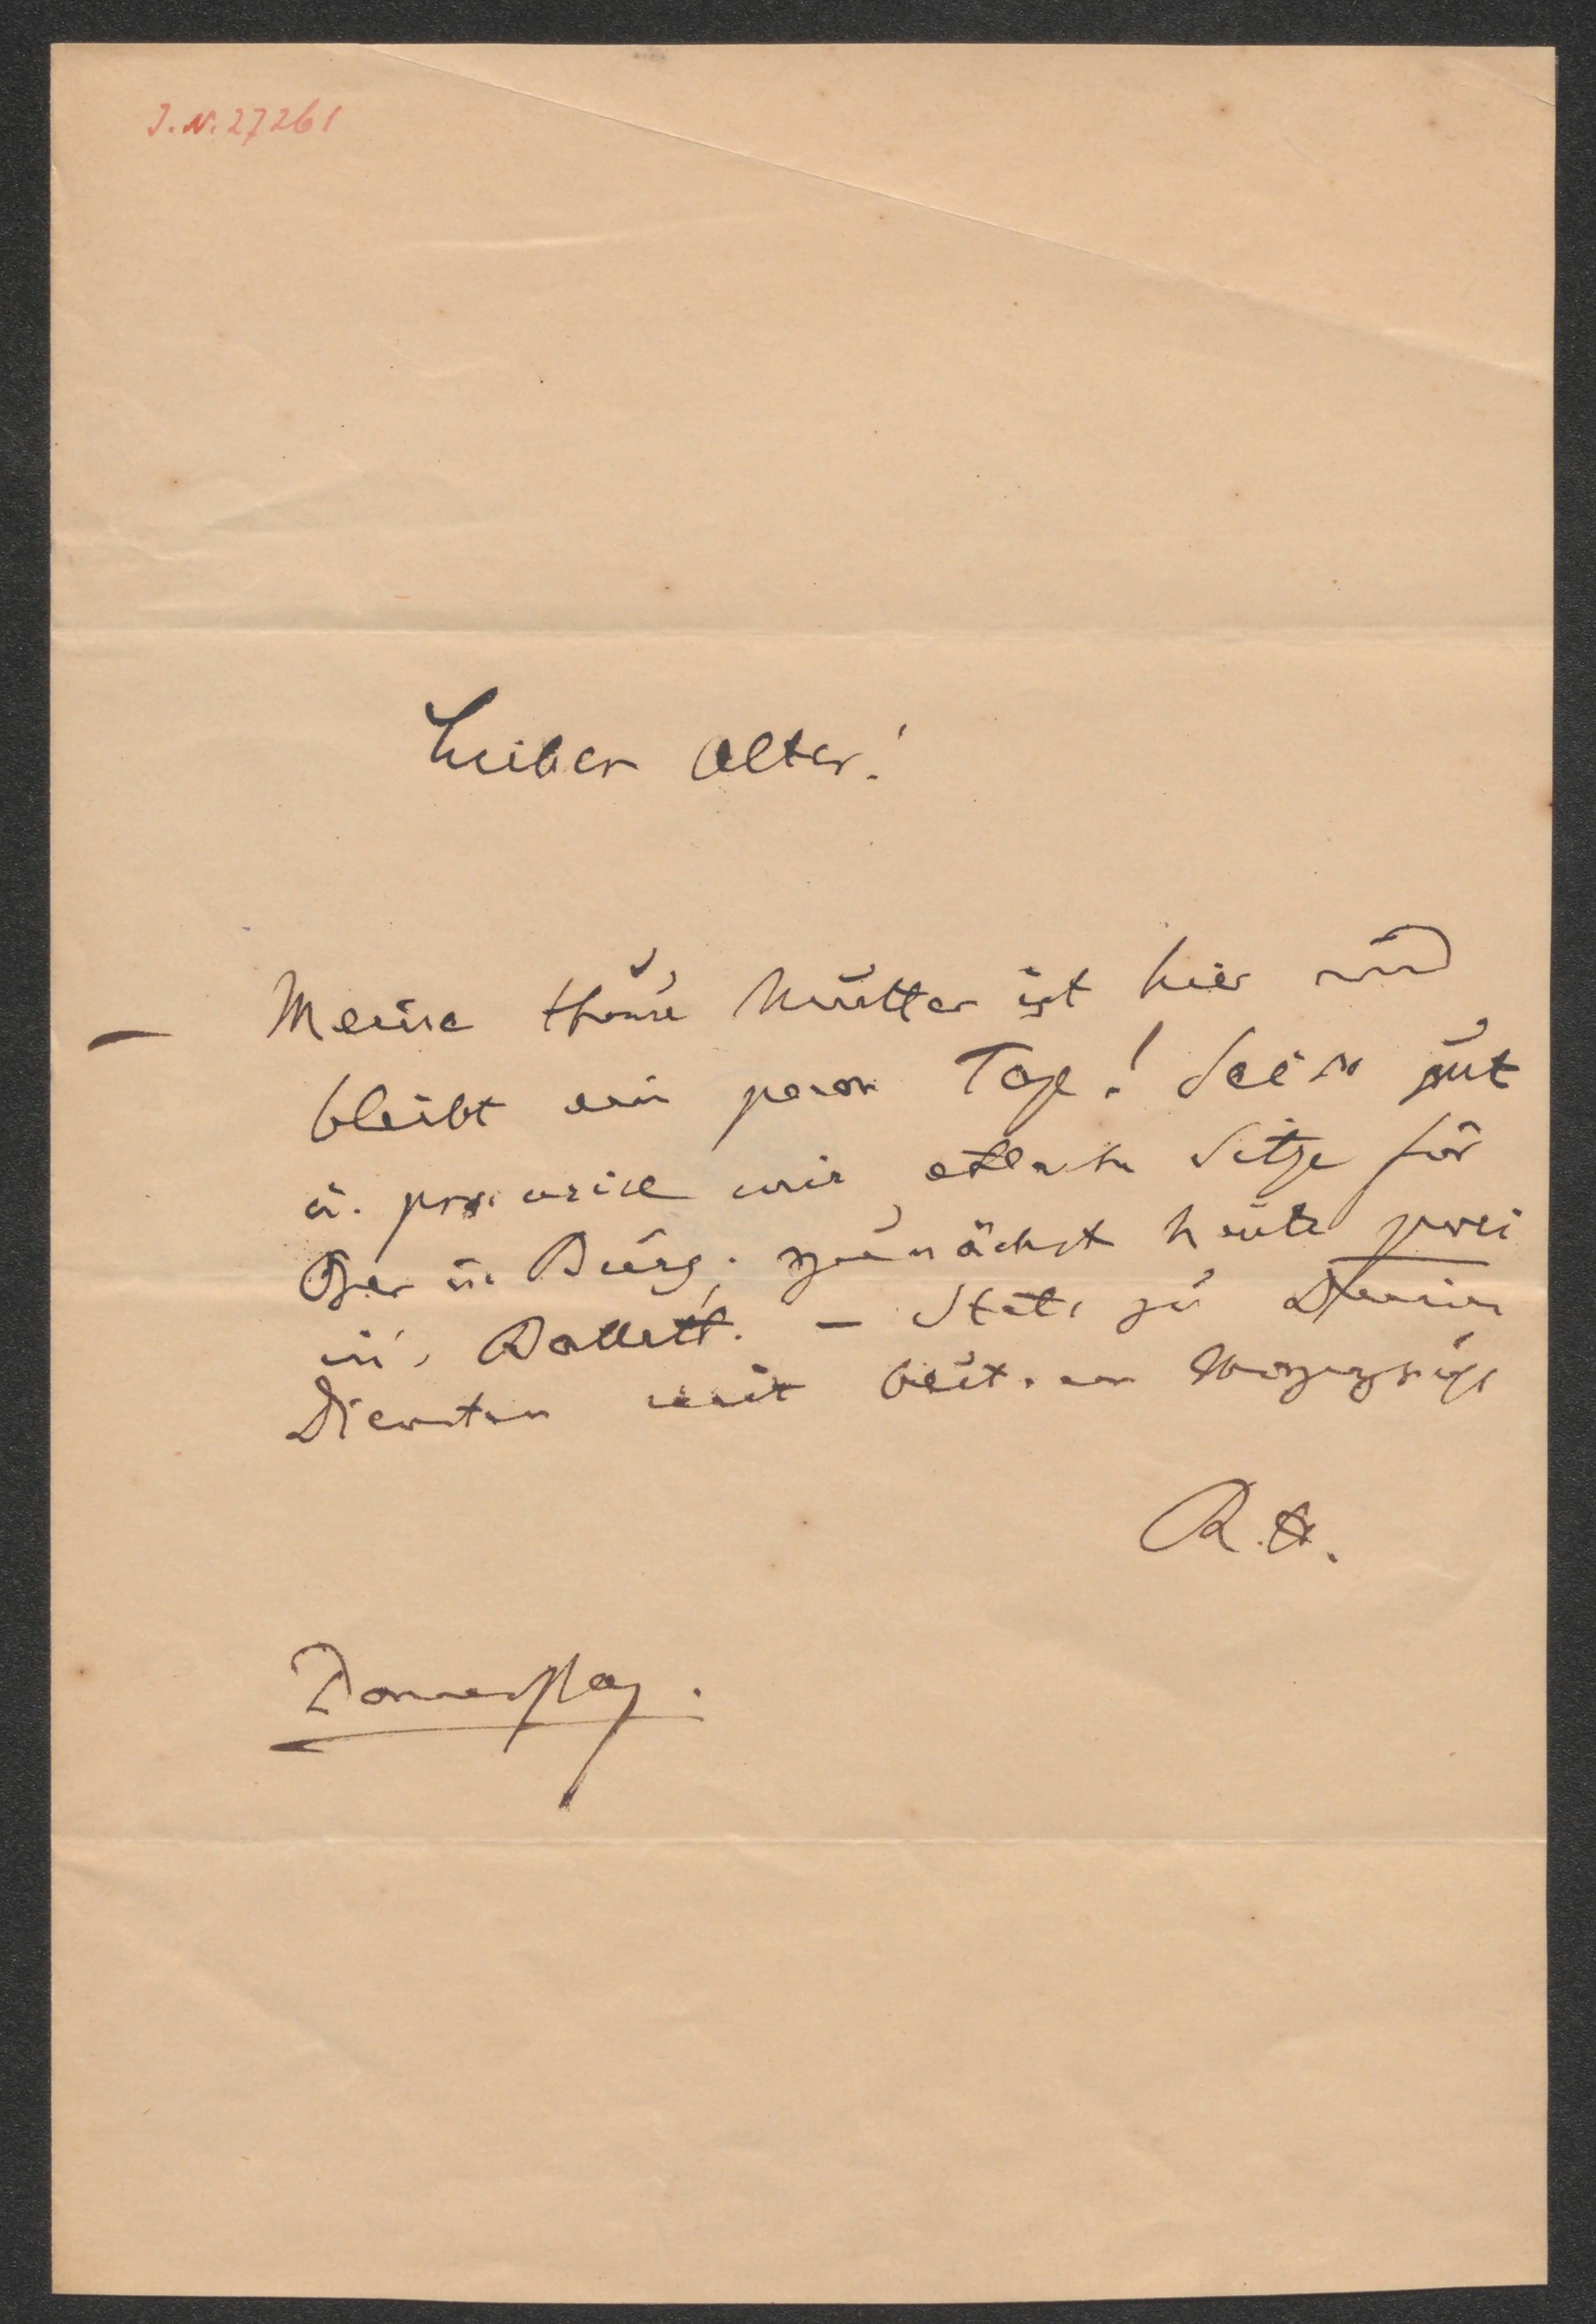 J. N. 27261
Lieber Alter!
— Meine theure Mutter ist hier und
bleibt ein paar Tage! Sei so gut
u. procurire mir etliche Sitze für
Oper u. Burg; zunächst heute zwei
in's Ballett. — Stets zu Deinen
Diensten mit
R. A.
Donnerstag.